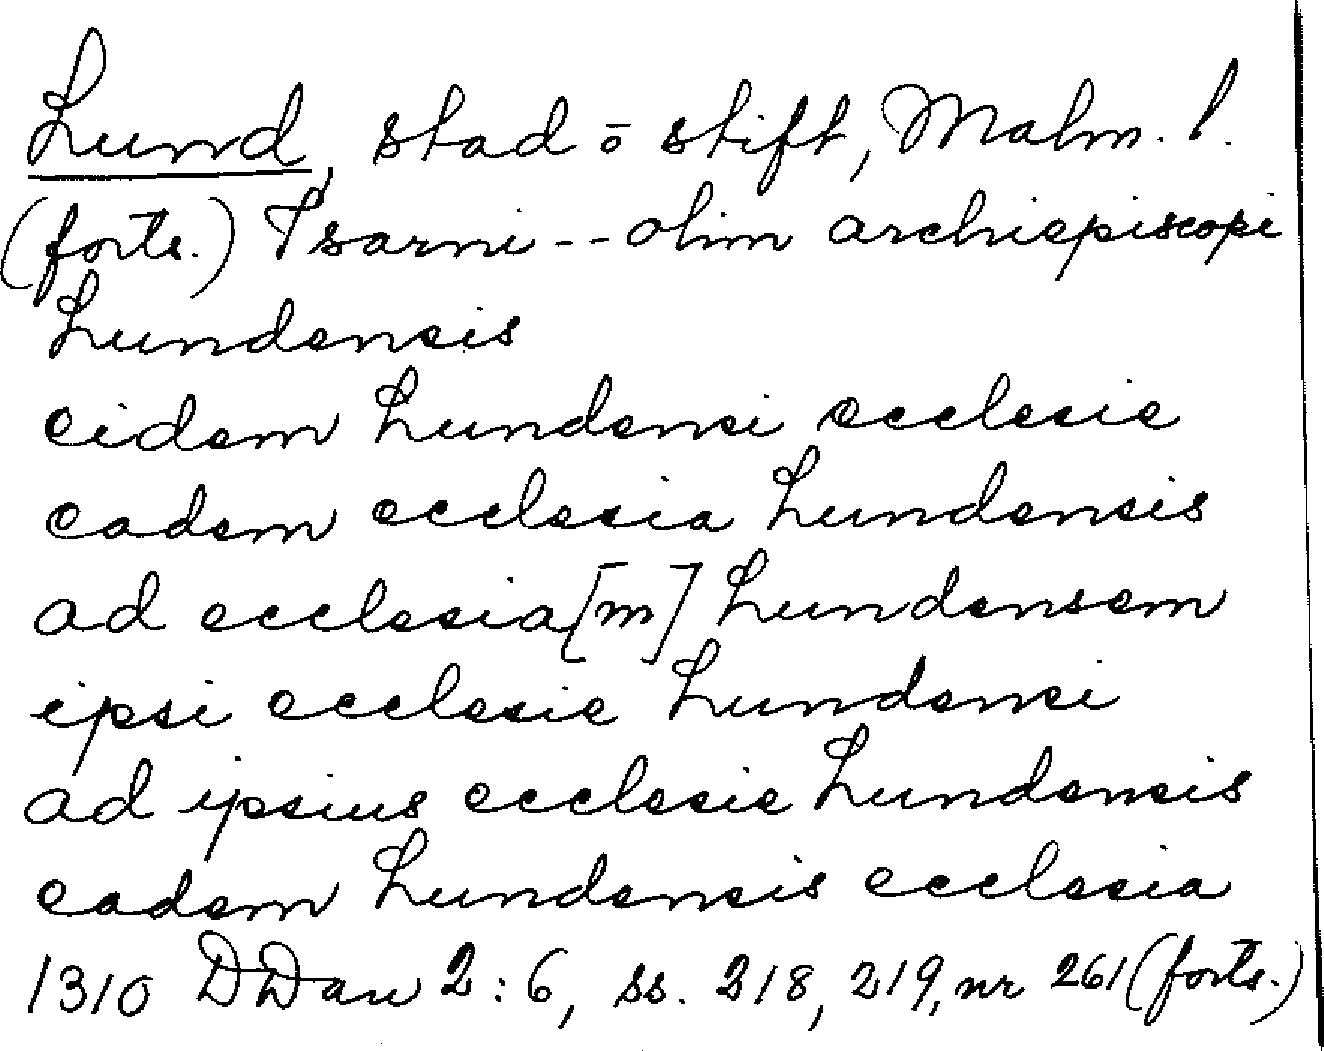 Lund, stad ō stift, Malm. l.
(forts.) Isarni -- olim archiepiscopi
Lundensis
eidem Lundensi ecclesie
eadem ecclesia Lundensis
ad ecclesia[m] Lundensem
ipsi ecclesie Lundensi
ad ipsius ecclesie Lundensis
eadem Lundensis ecclesia
1310 DDan 2:6, ss. 218, 219, nr 261 (forts.)